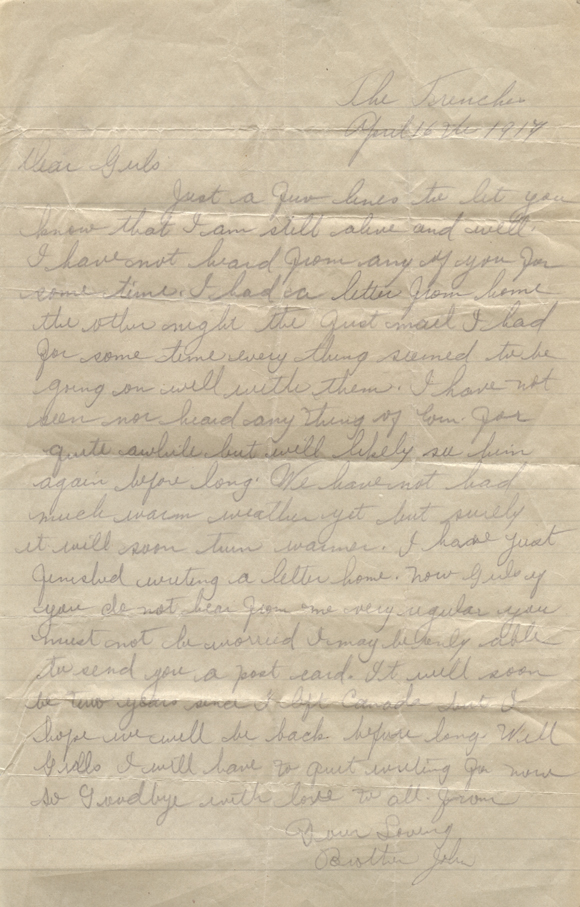 The Trenches
April 16 the 1917
Dear Girls
Just a few lines to let you
know that I am still alive and well.
I have not heard from any of you for
some time. I had a letter from home
the other night the first mail I had
for some time every thing seemed to be
going on well with them. I have not
seen nor heard any thing of Com. for
quite awhile but will likely see him
again before long. We have not had
much warm weather yet but surely
it will soon turn warmer. I have just
finished writing a letter home. now Girls if
you do not hear from me very regular you
must not be worried I may be only able
to send you a post card. It will soon
be two years since I left Canada but I
hope we will be back before long. Well
Girlls I will have to quit writing for now
so Goodbye with love to all. from
Your Loving
Brother John